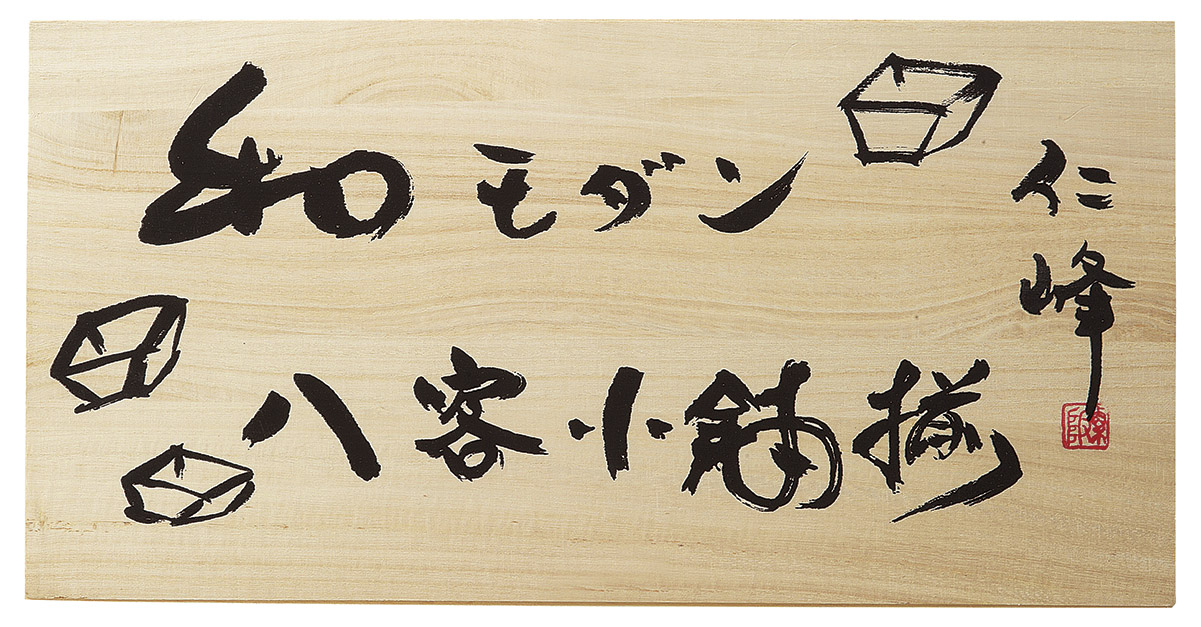 和モダン
八客小鉢揃
仁峰